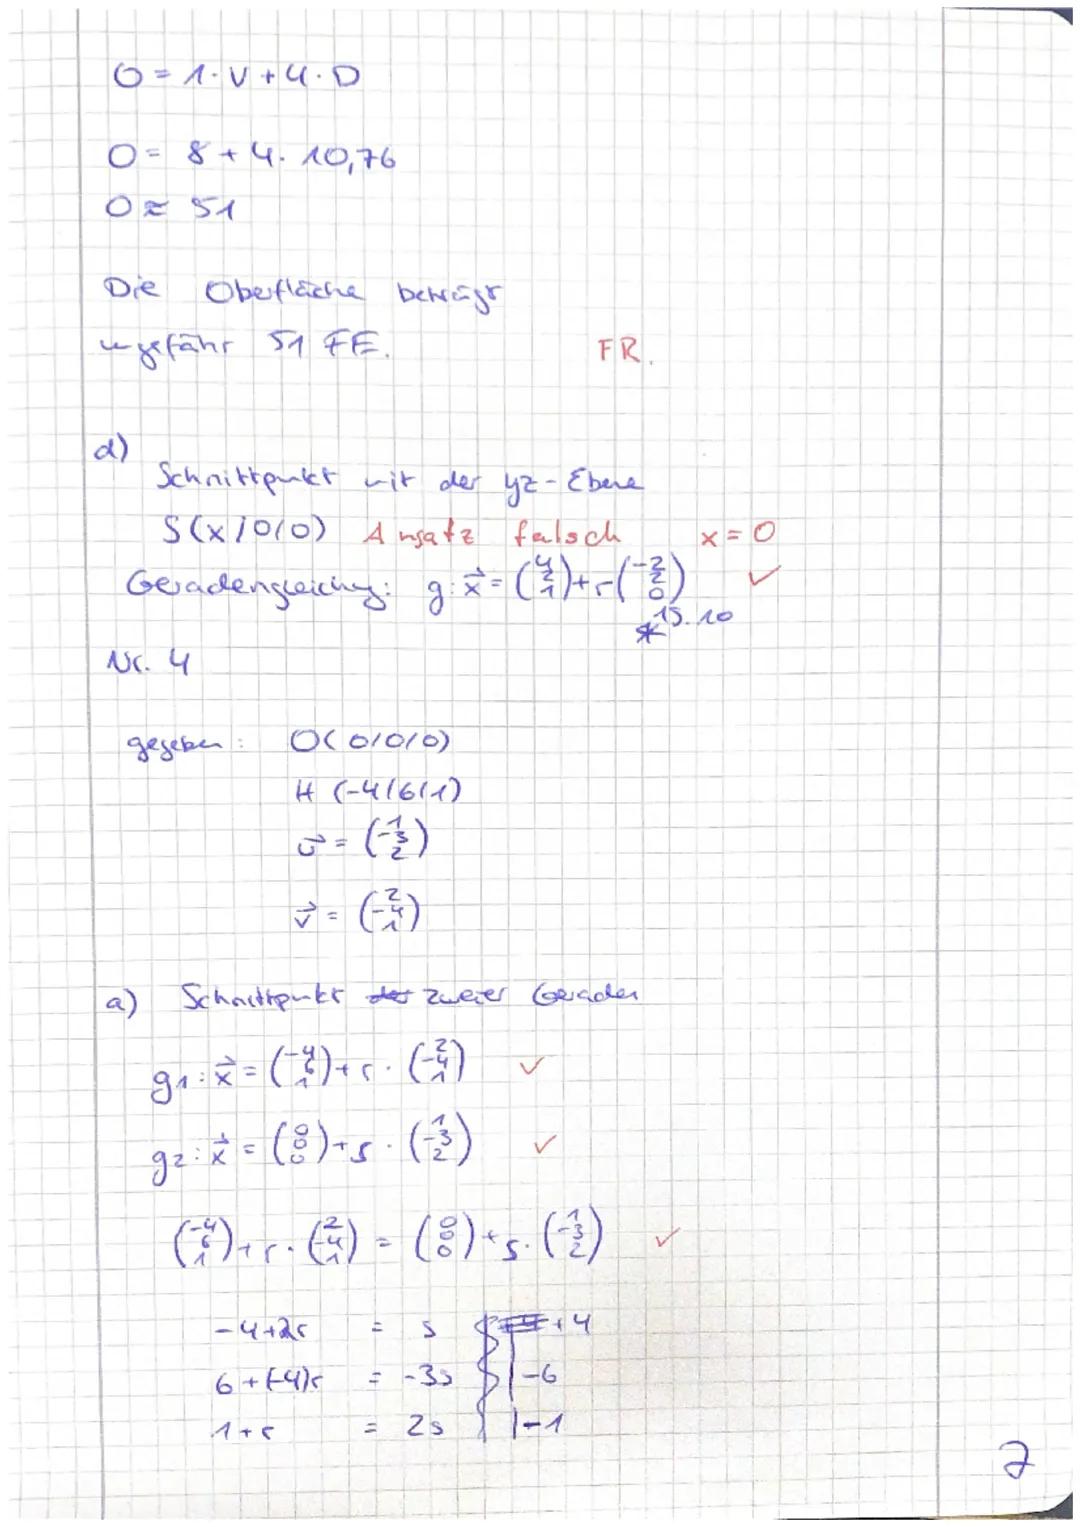 O = 1·V + 4·D
O = 8 + 4·10,76
O ≈ 51
Die Oberfläche beträgt
ungefähr 51 FE. FR.
d)
Schnittpunkt mit der yz-Ebene
S(x/0/0) Ansatz falsch x=0
Geradengleichung: g: x⃗ = (4 2 1) + r (-2 2 0) ✓
* 15.10
Nr. 4
gegeben: O(0/0/0)
H (-4/6/1)
u⃗ = (1 -3 2)
v⃗ = (2 -4 1)
a) Schnittpunkt der zweier Geraden
g1: x⃗ = (-4 6 1) + r · (2 -4 1) ✓
g2: x⃗ = (0 0 0) + s · (1 -3 2) ✓
(-4 6 1) + r · (2 -4 1) = (0 0 0) + s · (1 -3 2) ✓
-4+2r = s +4
6+(-4)r = -3s |-6
1+r = 2s |-1
2